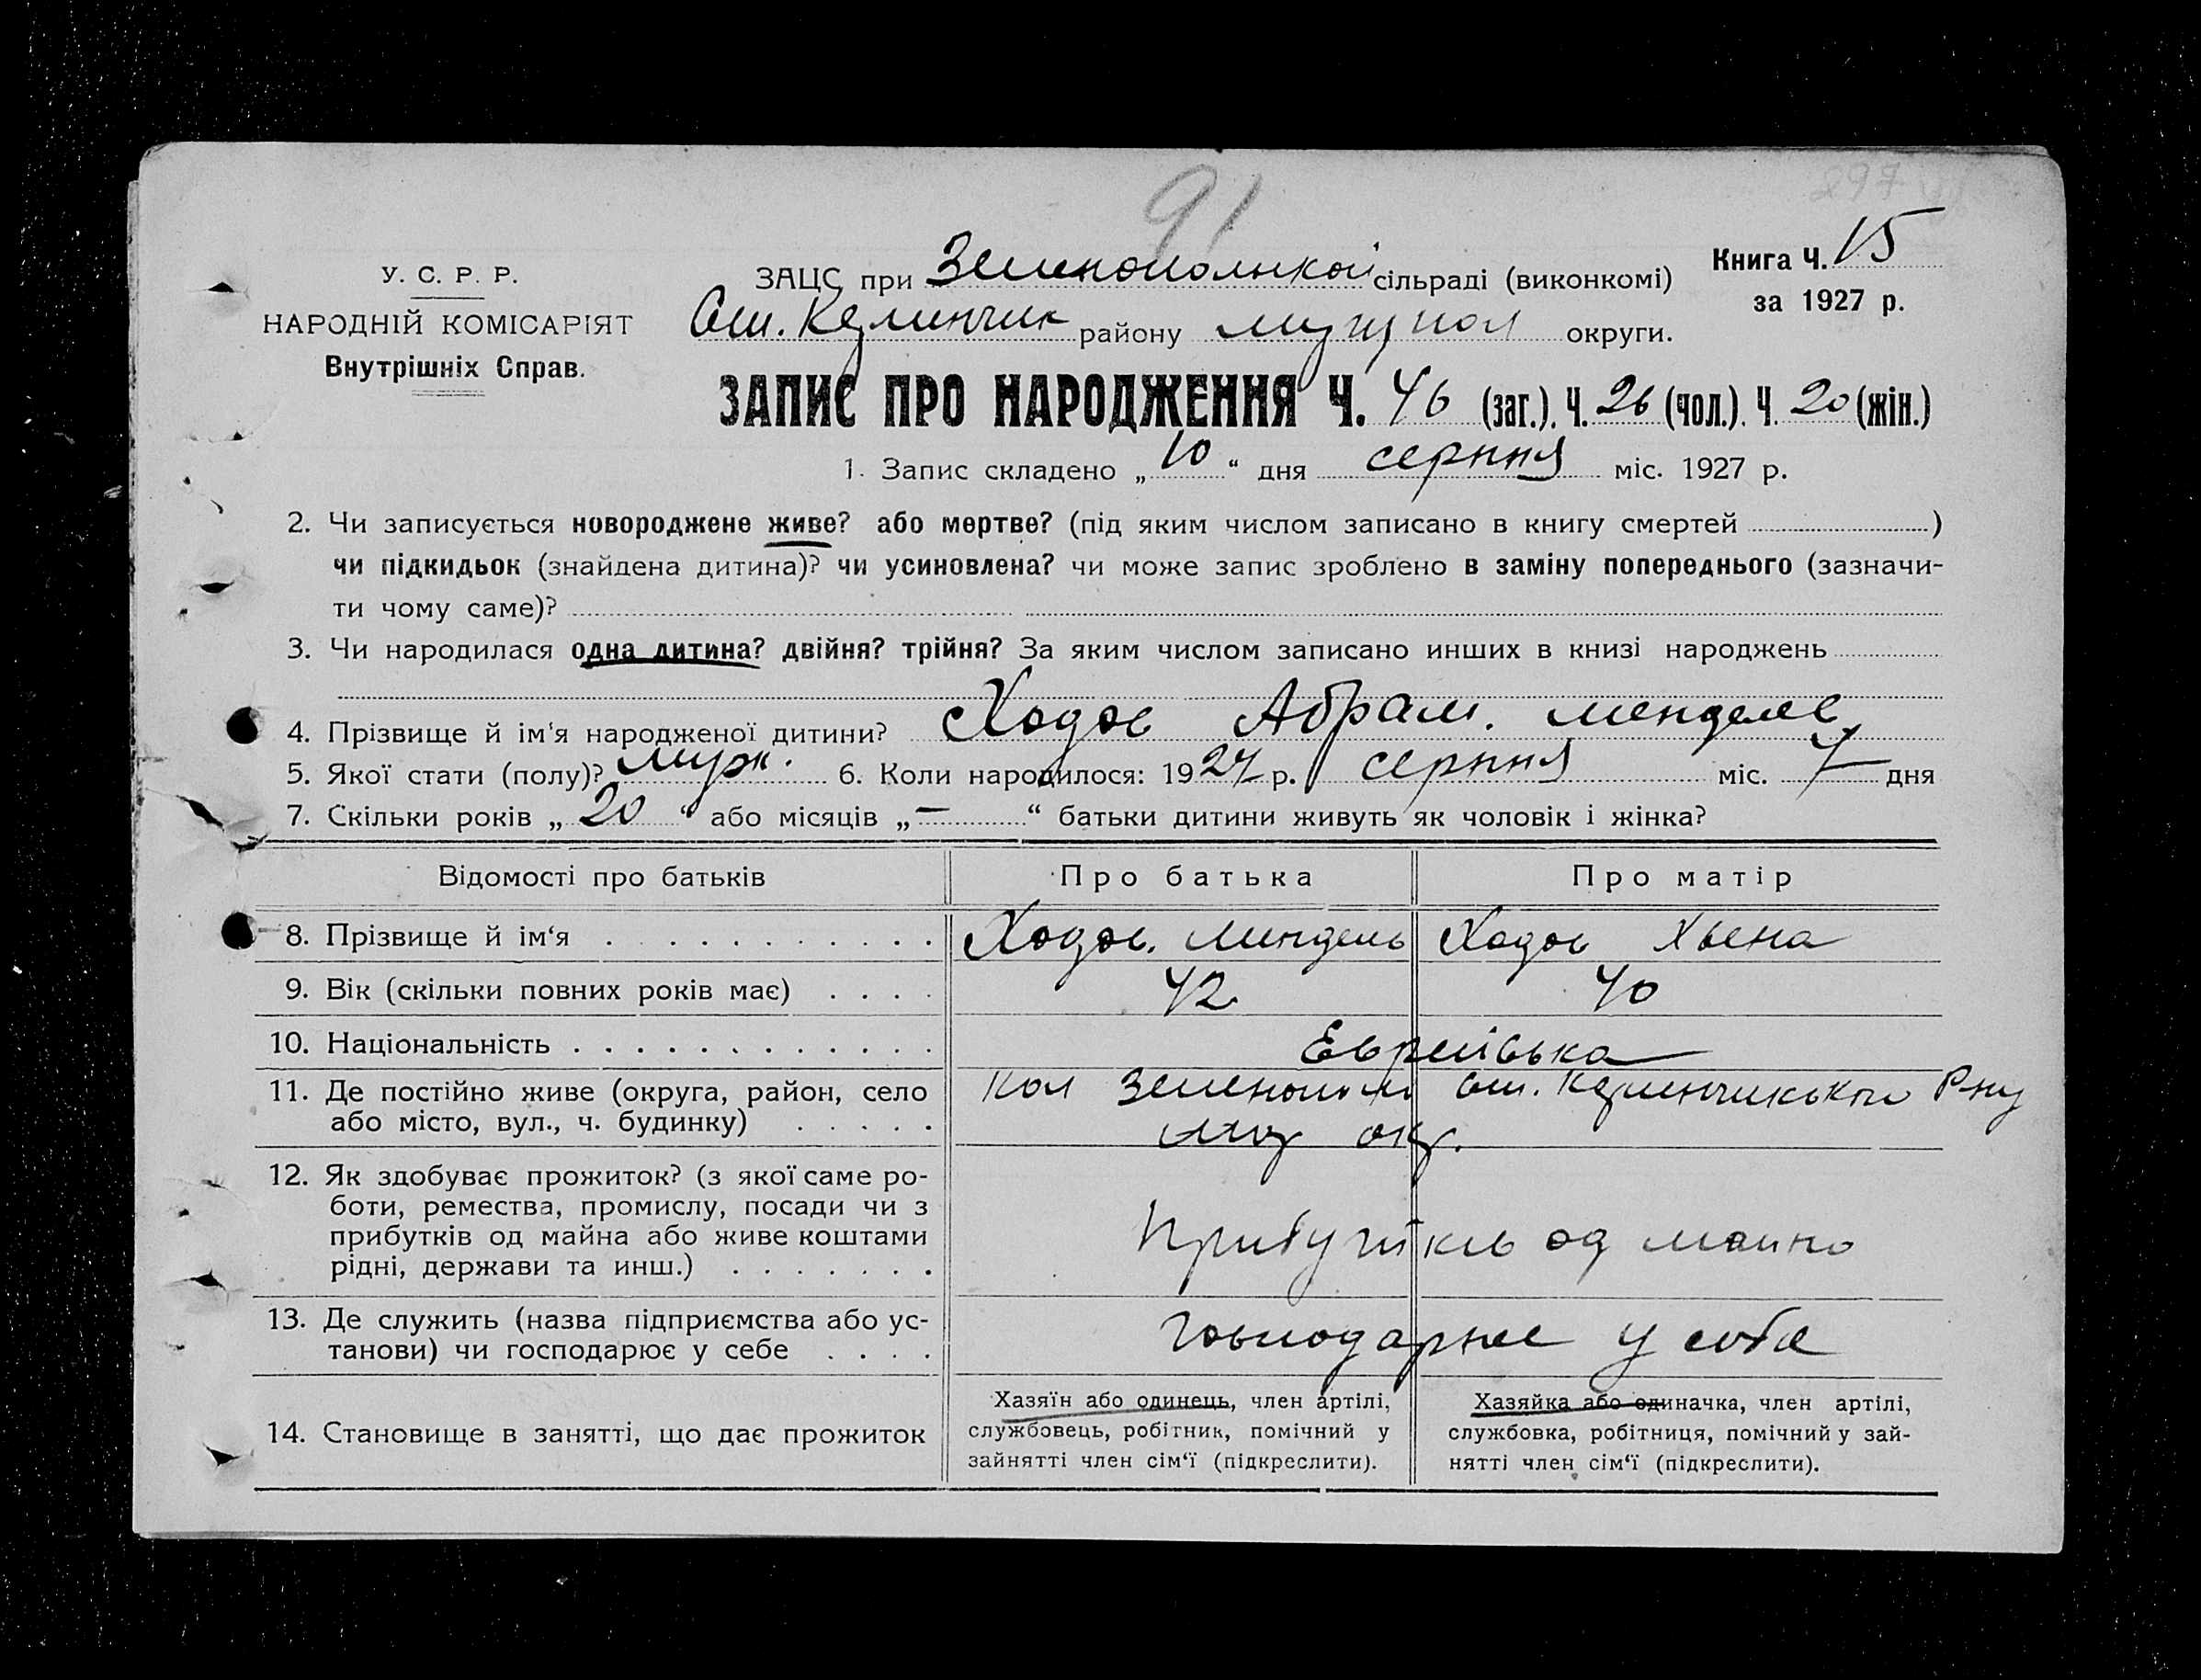 91
297
У. С. Р. Р.
НАРОДНІЙ КОМІСАРІЯТ
Внутрішніх Справ.
ЗАЦС при Зеленопольской сільраді (виконкомі)
Книга Ч. 15
за 1927 р.
району округи.
ЗАПИС ПРО НАРОДЖЕННЯ Ч. 46 (заг.). Ч. 26 (чол.). Ч. 20 (жін.)
1. Запис складено „ 10 “ дня серпня міс. 1927 р.
2. Чи записується новороджене живе? або мертве? (під яким числом записано в книгу смертей )
чи підкидьок (знайдена дитина)? чи усиновлена? чи може запис зроблено в заміну попереднього (зазначи-
ти чому саме)?
3. Чи народилася одна дитина? двійня? трійня? За яким числом записано инших в книзі народжень
4. Прізвище й ім‘я народженої дитини? Ходос Абрам. Менделев.
5. Якої стати (полу)? Муж. 6. Коли народилося: 1927 р. серпня міс. 7 дня
7. Скільки років „ 20 “ або місяців „ — “ батьки дитини живуть як чоловік і жінка?
Відомості про батьків Про батька Про матір
8. Прізвище й ім‘я . . . . . . . . . . . Ходос. Мендель Ходос Хьена
9. Вік (скільки повних років має) . . . . 42 40
10. Національність . . . . . . . . . . . . . Еврейська
11. Де постійно живе (округа, район, село Кол Зеленополь Рну
або місто, вул., ч. будинку) . . . . . окр.
12. Як здобуває прожиток? (з якої саме ро-
боти, ремества, промислу, посади чи з
прибутків од майна або живе коштами од майна
рідні, держави та инш.) . . . . . . .
13. Де служить (назва підприємства або ус-
танови) чи господарює у себе . . . . у себе
14. Становище в занятті, що дає прожиток
Хазяїн або одинець, член артілі,
службовець, робітник, помічний у
зайнятті член сім‘ї (підкреслити).
Хазяйка або одиначка, член артілі,
службовка, робітниця, помічний у зай-
нятті член сім‘ї (підкреслити).